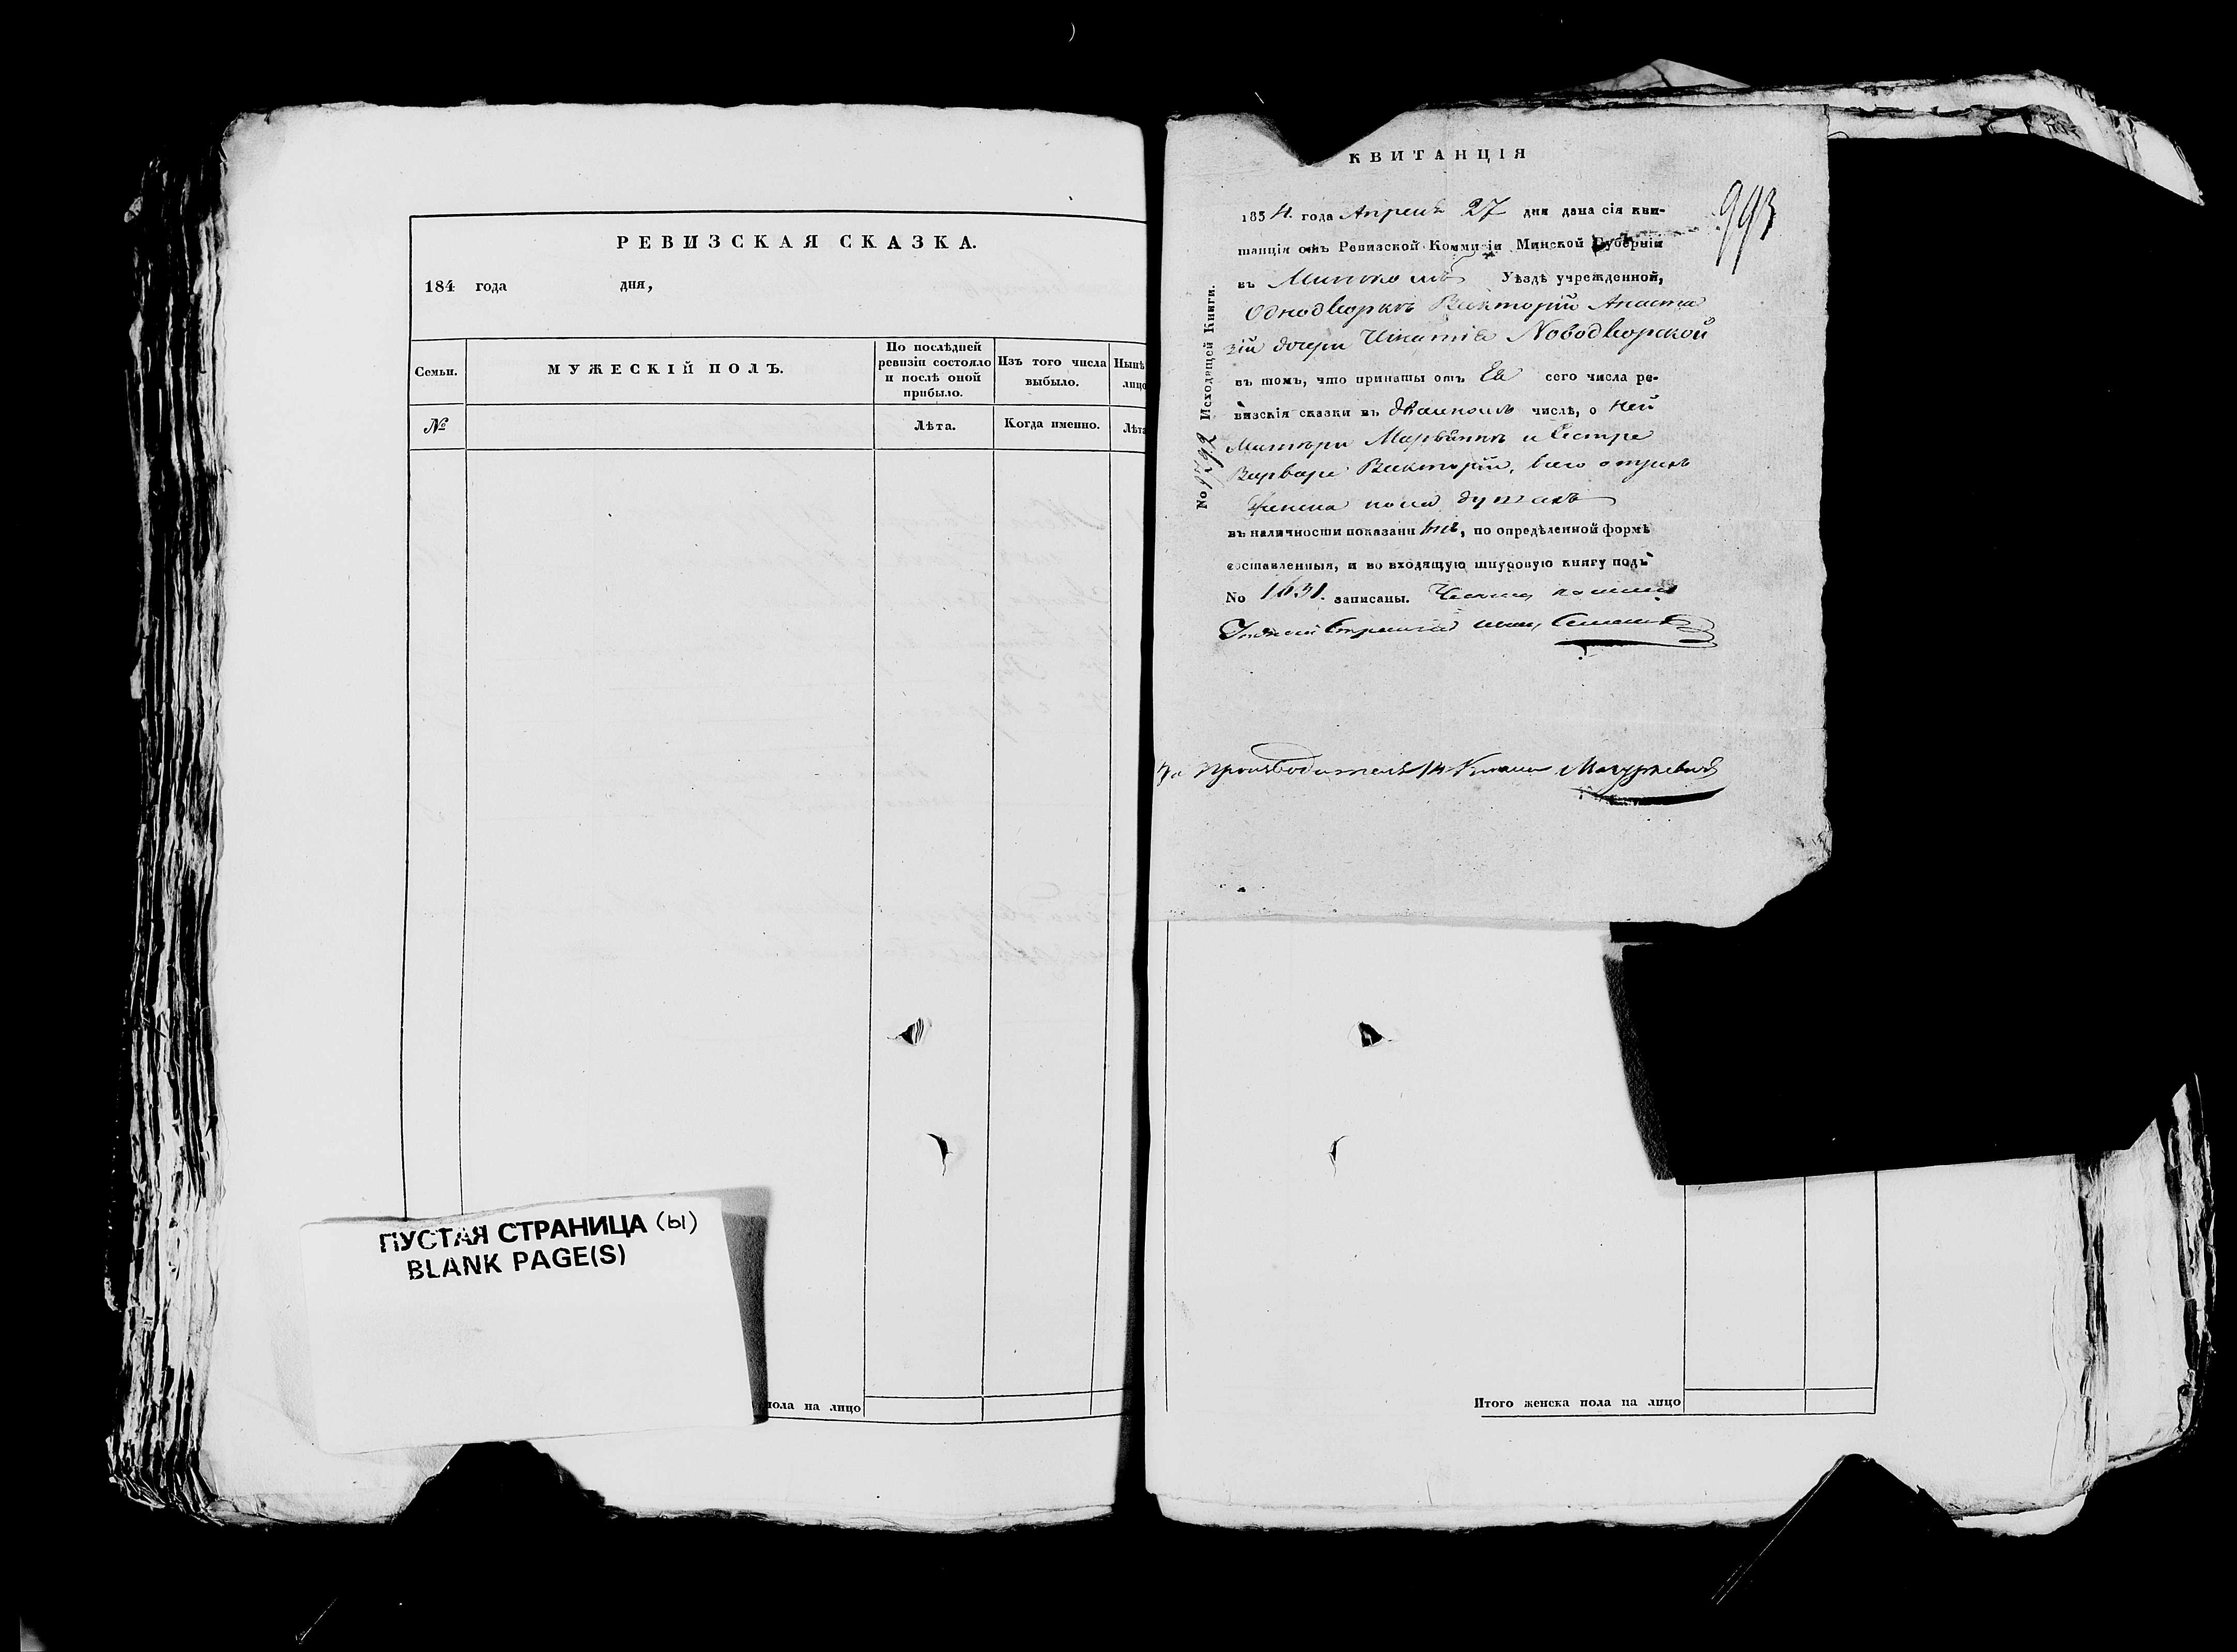 РЕВИЗСКАЯ СКАЗКА.
184 года дня,
Семьи.
МУЖЕСКІЙ ПОЛЪ.
По послѣдней
ревизіи состояло
и послѣ оной
прибыло.
Изъ того числа
выбыло.
Нынѣ
лицо
№
Лѣта.
Когда именно.
Лѣта
ПУСТАЯ СТРАНИЦА (Ы)
BLANK PAGE(S)
пола на лицо
КВИТАНЦІЯ
993
1854. года Апреля 27 дня дана сія кви-
танція отъ Ревизской Коммисіи Минской Губерніи
въ Минскомъ Уѣздѣ учрежденной,
Однодворкѣ Викторіи Анаста
зіи дочери Игнатія Новодворской
въ томъ, что приняты отъ Ея сего числа ре-
визскія сказки въ двойномъ числѣ, о ней
Матери и Сестре
Варваре Викторіи, всего о трехъ
женска пола душахъ
въ наличности показанныхъ, по опредѣленной формѣ
составленныя, и во входящую шнуровую книгу подъ
No 1631. записаны.
No Исходящей Книги.
Итого женска пола на лицо